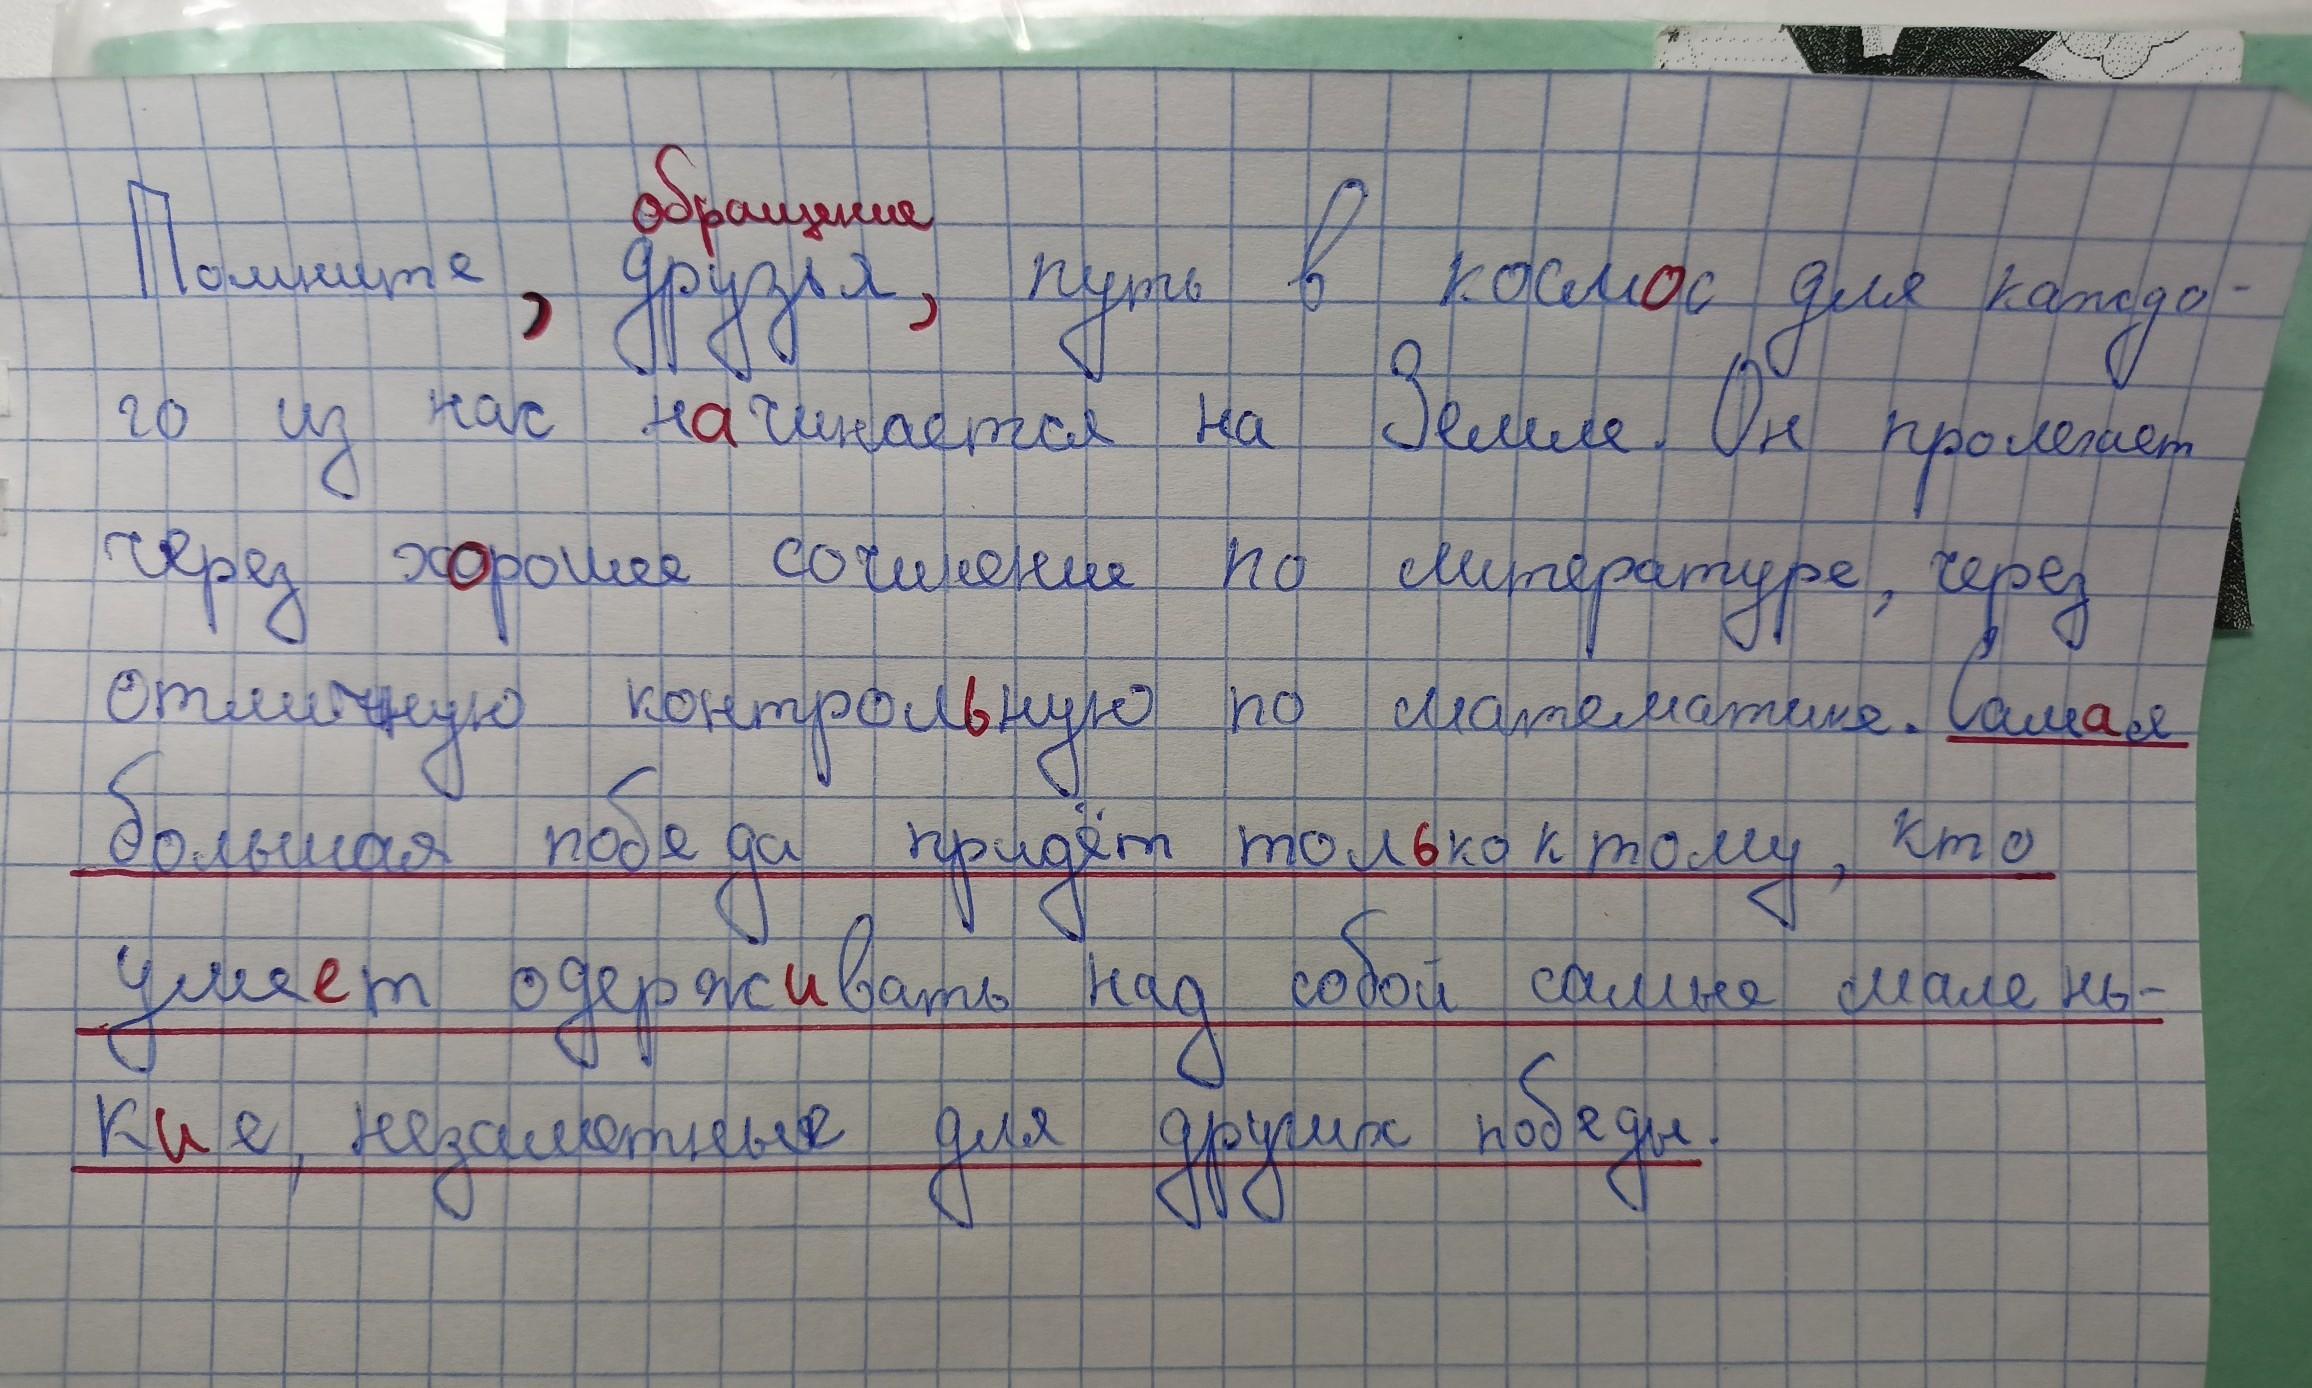 обращение
Помните, друзья, путь в космос для каждо-
го из нас начинается на Земле. Он пролегает
через хорошее сочинение по литературе, через
отличную контрольную по математике. Самая
большая победа придёт только к тому, кто
умеет одерживать над собой самые малень-
кие, незаметные для других победы.